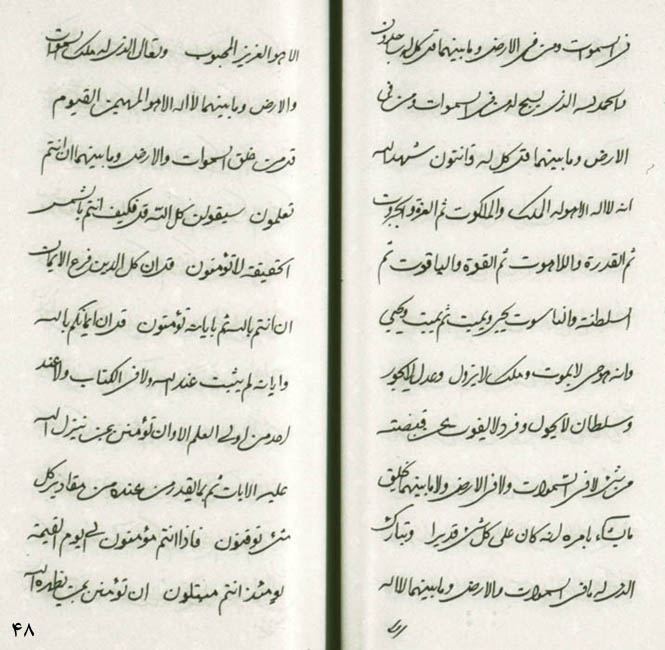 فی السموات ومن فی الارض وما بینهما قل کل له ساجدون
والحمد لله الذی یسبح له من فی السموات ومن فی
الارض وما بینهما قل کل له قانتون شهد الله
انه لا اله الا هو له الملک والملکوت ثم العزة والجبروت
ثم القدرة واللاهوت ثم القوة والیاقوت ثم
السلطنة والناسوت یحیی ویمیت ثم یمیت ویحیی
وانه هو حی لایموت وملک لایزول وعدل لایجور
وسلطان لایحول وفرد لایفوت عن قبضته
من شیئ لا فی السموات ولا فی الارض ولا ما بینهما یخلق
ما یشاء بامره انه کان علی کل شیئ قدیرا وتبارک
الذی له ما فی السموات والارض وما بینهما لا اله
الا هو العزیز المحبوب وتعالی الذی له ملک السموات
والارض وما بینهما لا اله الا هو المهیمن القیوم
قل من خلق السموات والارض وما بینهما ان انتم
تعلمون سیقولن کل الله قل فکیف انتم بالشمس
الحقیقة لا تؤمنون قل ان کل الدین فرع الایمان
ان انتم بالله ثم بایاته تؤمنون قل ان ایمانکم بالله
وایاته لم یثبت عند الله ولا فی الکتاب ولا عند
احد من اولی العلم الا وان تؤمنن بمن ینزل الله
علیه الایات ثم بما یقدر من عنده من مقادیر کل
شیئ توقنون فاذا انتم مؤمنون الی یوم القیمة
یومئذ انتم مبتلون ان تؤمنن بمن یظهره الله
۴۸